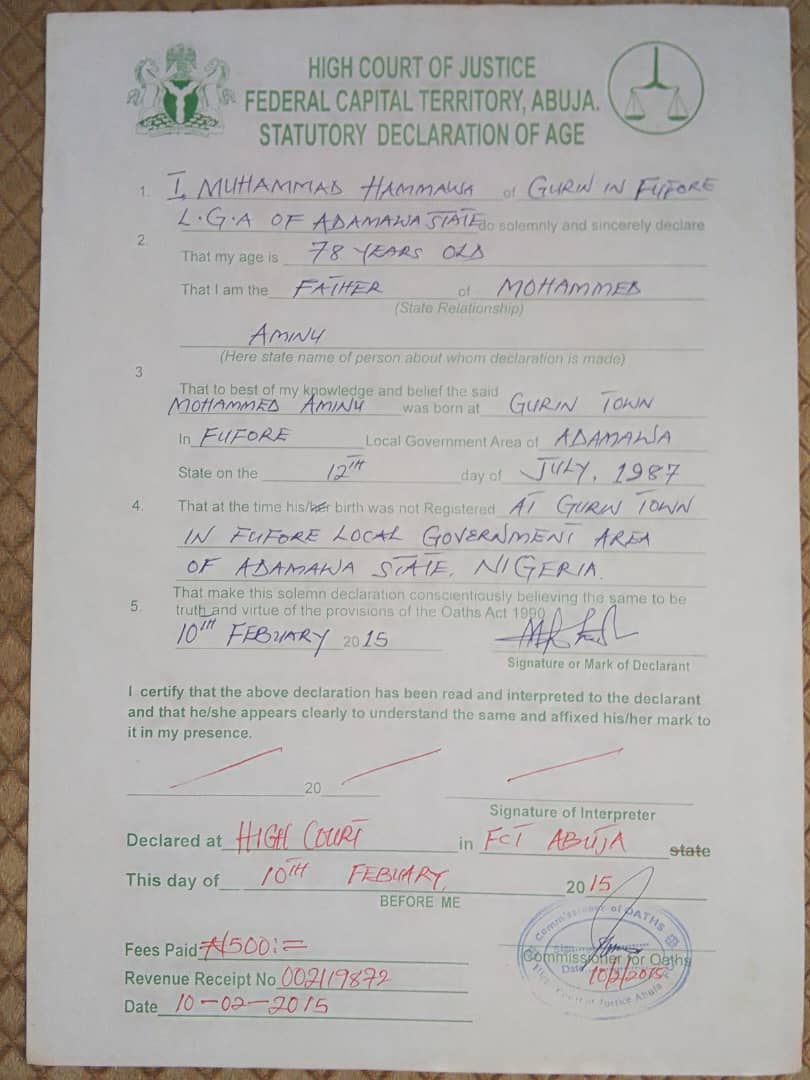 HIGH COURT OF JUSTICE
FEDERAL CAPITAL TERRITORY, ABUJA.
STATUTORY DECLARATION OF AGE
1. I, MUHAMMAD HAMMAWA of GURIN IN FUFORE
L.G.A OF ADAMAWA STATE do solemnly and sincerely declare
2. That my age is 78 YEARS OLD
That I am the FATHER of MOHAMMED
(State Relationship)
AMINU
(Here state name of person about whom declaration is made)
3
That to best of my knowledge and belief the said
MOHAMMED AMINU was born at GURIN TOWN
In FUFORE Local Government Area of ADAMAWA
State on the 12TH day of JULY, 1987
4. That at the time his/her birth was not Registered AT GURIN TOWN
IN FUFORE LOCAL GOVERNMENT AREA
OF ADAMAWA STATE, NIGERIA.
5. That make this solemn declaration conscientiously believing the same to be
truth and virtue of the provisions of the Oaths Act 1990
10TH FEBUARY 2015
Signature or Mark of Declarant
I certify that the above declaration has been read and interpreted to the declarant
and that he/she appears clearly to understand the same and affixed his/her mark to
it in my presence.
20
Signature of Interpreter
Declared at HIGH COURT in FCT ABUJA state
This day of 10TH FEBUARY, 2015
BEFORE ME
Commissioner of OATHS
Fees Paid ₦500:=
Commissioner for Oaths
Revenue Receipt No 002119872
Date 10/2/2015
High Court of Justice Abuja
Date 10-02-2015